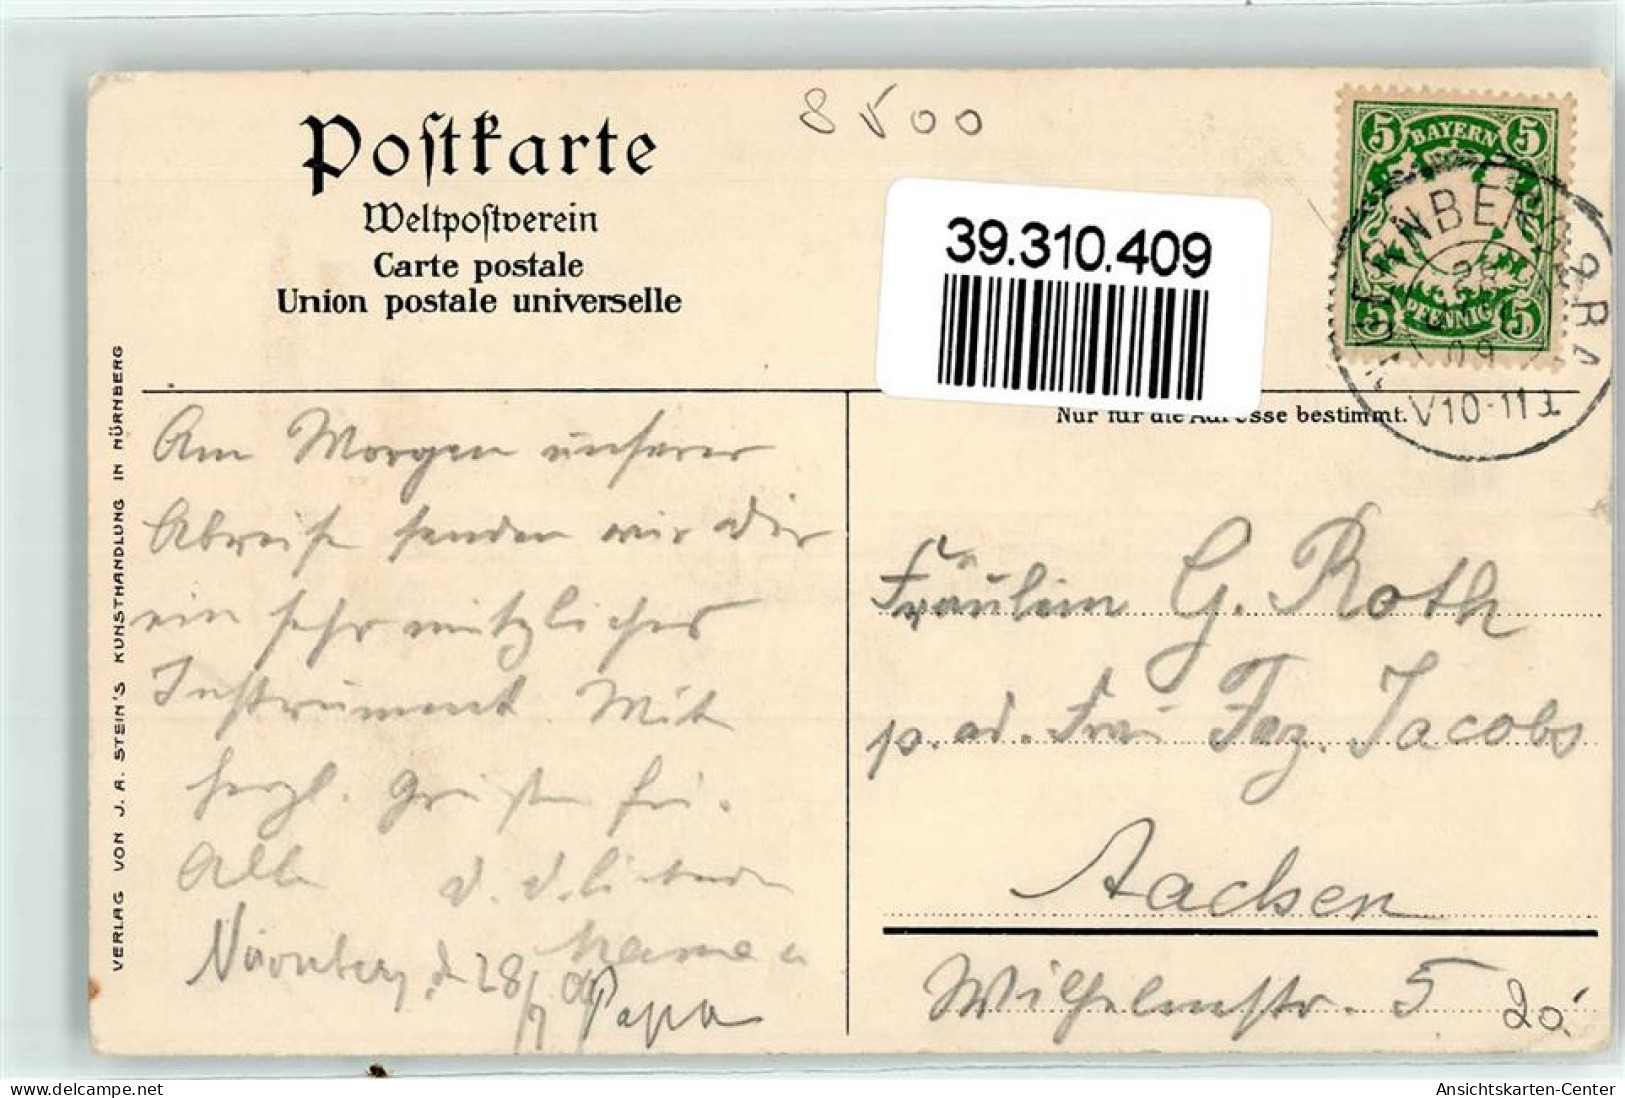 8500
Postkarte
Weltpostverein
Carte postale
Union postale universelle
39.310.409
BAYERN
5 5
5 PFENNIG 5
NUERNBERG 2 R
V 10-11
Nur für die Adresse bestimmt.
VERLAG VON J. A. STEIN'S KUNSTHANDLUNG IN NÜRNBERG
Am Morgen unserer
Abreise senden wir Dir
ein sehr nützliches
Instrument. Mit
herzl. Grüßen für
Alle D. D. liebende
Mama u
Nürnberg, d. 28/7 09 Papa
Fräulein G. Roth
p. ad. Frau Jacobs
Aachen
Wilhelmstr. 5
20.
delcampe.net
Ansichtskarten-Center